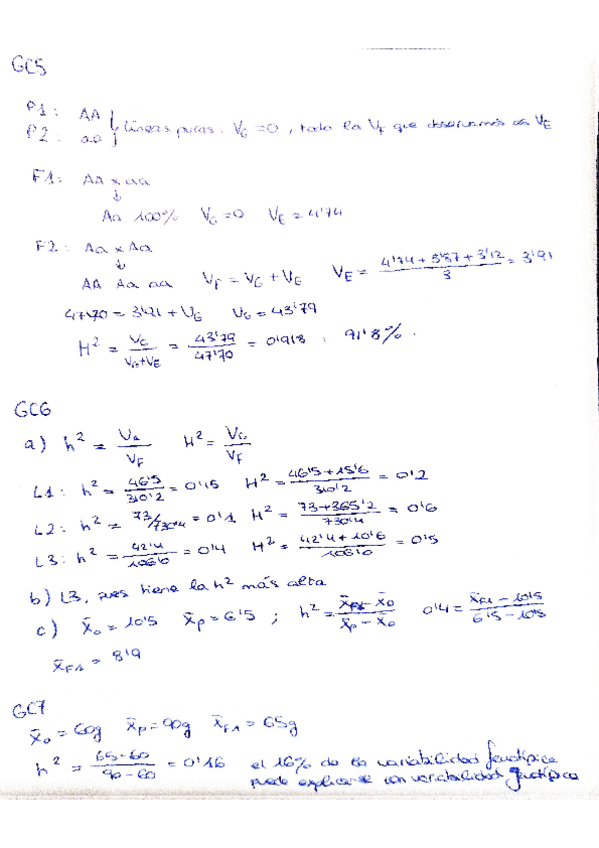 GC5
P1: AA
P2: aa } Líneas puras: VG = 0, toda la VF que observamos es VE
F1: AA x aa
↓
Aa 100% VG = 0 VE = 4'74
F2: Aa x Aa
↓
AA Aa aa VF = VG + VE VE = (4'74 + 3'87 + 3'12)/3 = 3'91
47'70 = 3'91 + VG VG = 43'79
H² = VG/(VG+VE) = 43'79/47'70 = 0'918 : 91'8%.
GC6
a) h² = Va/VF H² = VG/VF
L1: h² = 46'5/310'2 = 0'15 H² = (46'5 + 15'6)/310'2 = 0'2
L2: h² = 73/730'4 = 0'1 H² = (73 + 365'2)/730'4 = 0'6
L3: h² = 42'4/106'0 = 0'4 H² = (42'4 + 10'6)/106'0 = 0'5
b) L3, pues tiene la h² más alta
c) x̄o = 10'5 x̄p = 6'5 ; h² = (x̄F1 - x̄o)/(x̄p - x̄o) 0'4 = (x̄F1 - 10'5)/(6'5 - 10'5)
x̄F1 = 8'9
GC7
x̄o = 60g x̄p = 90g x̄F1 = 65g
h² = (65-60)/(90-60) = 0'16 el 16% de la variabilidad fenotípica
puede explicarse con variabilidad genotípica